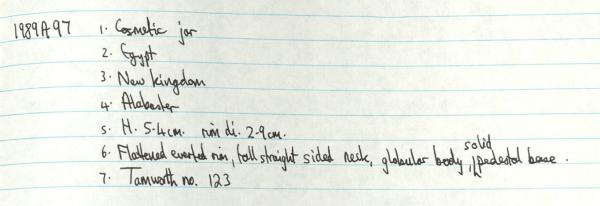 1989A97 1. Cosmetic jar
2. Egypt
3. New Kingdom
4. Alabaster
5. H. 5.4cm. rim di. 2.9cm.
6. Flattened everted rim, tall straight sided neck, globular body, solid pedestal base.
7. Tamworth no. 123